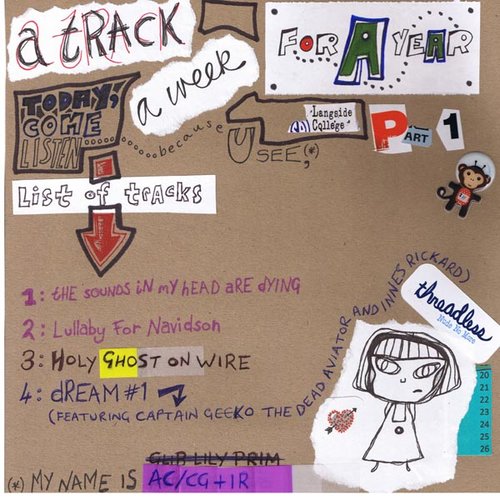 a tRACK
a week
FOR A YEAR
TODAY,
COME
LISTEN............because
U SEE,(*)
Langside
College
PART 1
List of tracks
1: tHE SOUNDS IN MY HEAD ARE DYING
2: Lullaby For Navidson
3: HOLY GHOST ON WIRE
4: dREAM #1
(FEATURING CAPTAIN GEEKO THE DEAD AVIATOR AND INNES RICKARD)
threadless
Nude No More
20
21
22
23
24
25
26
GLIB LILY PRIM
(*) MY NAME IS AC/CG+IR